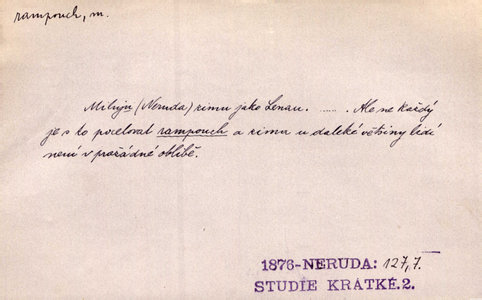 rampouch, m.
Miluju (Neruda) zimu jako Lenau. ...... Ale ne každý
je s to pocelovat rampouch a zimu u daleké většiny lidí
není v pořádné oblibě.
1876-NERUDA: 127,7.
STUDIE KRÁTKÉ.2.